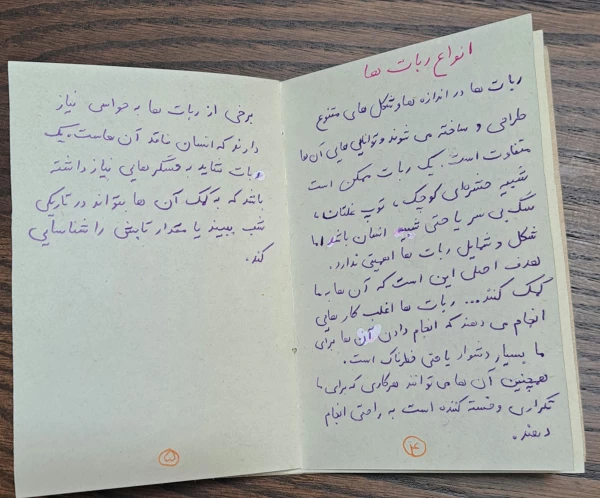 انواع ربات ها
ربات ها در اندازه ها و شکل های متنوع
طراحی و ساخته می شوند و توانایی هایی آن ها
متفاوت است. یک ربات ممکن است
شبیه حشره‌ای کوچک، توپ غلتان،
سگ بی سر یا حتی شبیه انسان باشد اما
شکل و شمایل ربات ها اهمیتی ندارد.
هدف اصلی این است که آن ها به ما
کمک کنند... ربات ها اغلب کارهایی
انجام می دهند که انجام دادن آن ها برای
ما بسیار دشوار یا حتی خطرناک است.
همچنین آن ها می توانند هرکاری که برای ما
تکراری و خسته کننده است به راحتی انجام
دهند.
۴
برخی از ربات ها به حواسی نیاز
دارند که انسان فاقد آن هاست. یک
ربات شاید به حسگرهایی نیاز داشته
باشد که به کمک آن ها بتواند در تاریکی
شب ببیند یا مقدار تابش را شناسایی
کند.
۵